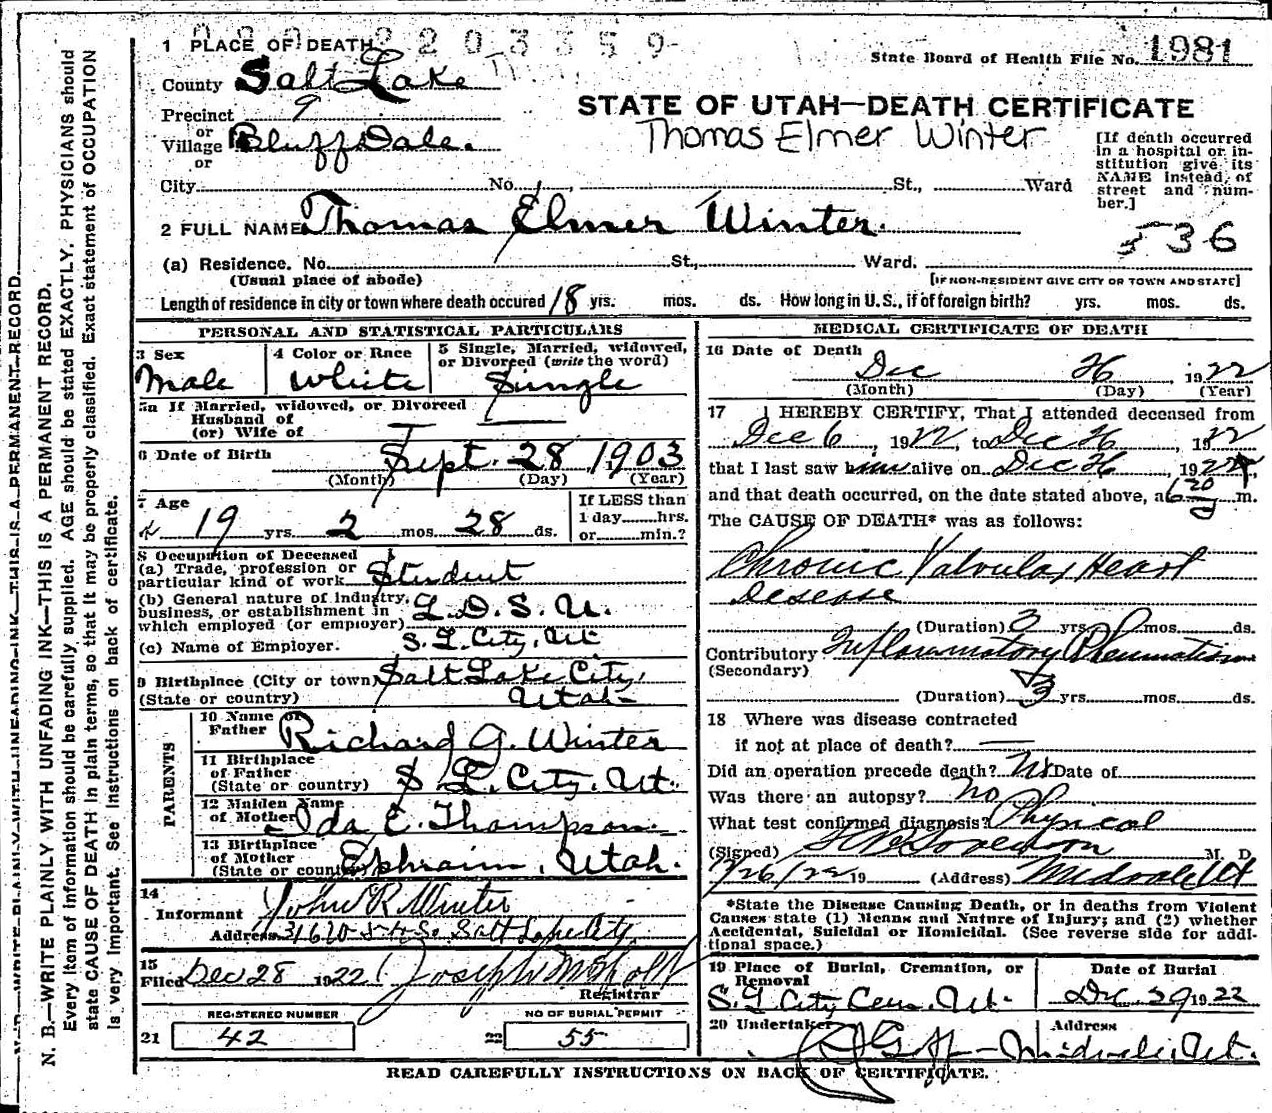 1 PLACE OF DEATH
State Board of Health File No. 1981
County Salt Lake
STATE OF UTAH—DEATH CERTIFICATE
Precinct 9
or
Village Bluff Dale.
or
Thomas Elmer Winter
[If death occurred
in a hospital or in-
stitution give its
NAME instead of
street and num-
ber.]
City No. St., Ward
2 FULL NAME Thomas Elmer Winter.
536
(a) Residence. No. St., Ward.
(Usual place of abode) [IF NON-RESIDENT GIVE CITY OR TOWN AND STATE]
Length of residence in city or town where death occured 18 yrs. mos. ds. How long in U.S., if of foreign birth? yrs. mos. ds.
PERSONAL AND STATISTICAL PARTICULARS
3 Sex
Male
4 Color or Race
White
5 Single, Married, widowed,
or Divorced (write the word)
Single
5a If Married, widowed, or Divorced
Husband of
(or) Wife of
6 Date of Birth
Sept. 28, 1903
(Month) (Day) (Year)
7 Age
19 yrs. 2 mos. 28 ds.
If LESS than
1 day hrs.
or min.?
8 Occupation of Deceased
(a) Trade, profession or
particular kind of work Student
(b) General nature of industry,
business, or establishment in
which employed (or employer) L.D.S.U.
(c) Name of Employer. S.L. City, Ut.
9 Birthplace (City or town) Salt Lake City,
(State or country) Utah
PARENTS
10 Name of
Father Richard G. Winter
11 Birthplace
of Father
(State or country) S L. City, Ut.
12 Maiden Name
of Mother Ida E. Thompson
13 Birthplace
of Mother
(State or country) Ephraim, Utah.
14
Informant John R Winter
Address Salt Lake City
15
Filed Dec 28 1922
Registrar
REGISTERED NUMBER
21 42
NO OF BURIAL PERMIT
22 55
MEDICAL CERTIFICATE OF DEATH
16 Date of Death
Dec 26, 1922
(Month) (Day) (Year)
17 I HEREBY CERTIFY, That I attended deceased from
Dec 6, 1922, to Dec 26, 1922
that I last saw him alive on Dec 26, 1922,
and that death occurred, on the date stated above, at 6 20 m.
The CAUSE OF DEATH* was as follows:
Chronic Valvular Heart
Desease
(Duration) 3 yrs. mos. ds.
Contributory Inflammatory Rheumatism
(Secondary)
(Duration) 3 yrs. mos. ds.
18 Where was disease contracted
if not at place of death?
Did an operation precede death? No Date of
Was there an autopsy? no
What test confirmed diagnosis? Physical
(Signed) Sorenson M. D.
12/26/22 19 (Address) Midvale Ut
*State the Disease Causing Death, or in deaths from Violent
Causes state (1) Means and Nature of Injury; and (2) whether
Accidental, Suicidal or Homicidal. (See reverse side for addi-
tional space.)
19 Place of Burial, Cremation, or
Removal
S.L. City Cem. Ut.
Date of Burial
Dec. 29 1922
20 Undertaker
Address
Midvale, Ut.
READ CAREFULLY INSTRUCTIONS ON BACK OF CERTIFICATE.
N. B.—WRITE PLAINLY WITH UNFADING INK—THIS IS A PERMANENT RECORD.
Every item of information should be carefully supplied. AGE should be stated EXACTLY. PHYSICIANS should
state CAUSE OF DEATH in plain terms, so that it may be properly classified. Exact statement of OCCUPATION
is very important. See instructions on back of certificate.